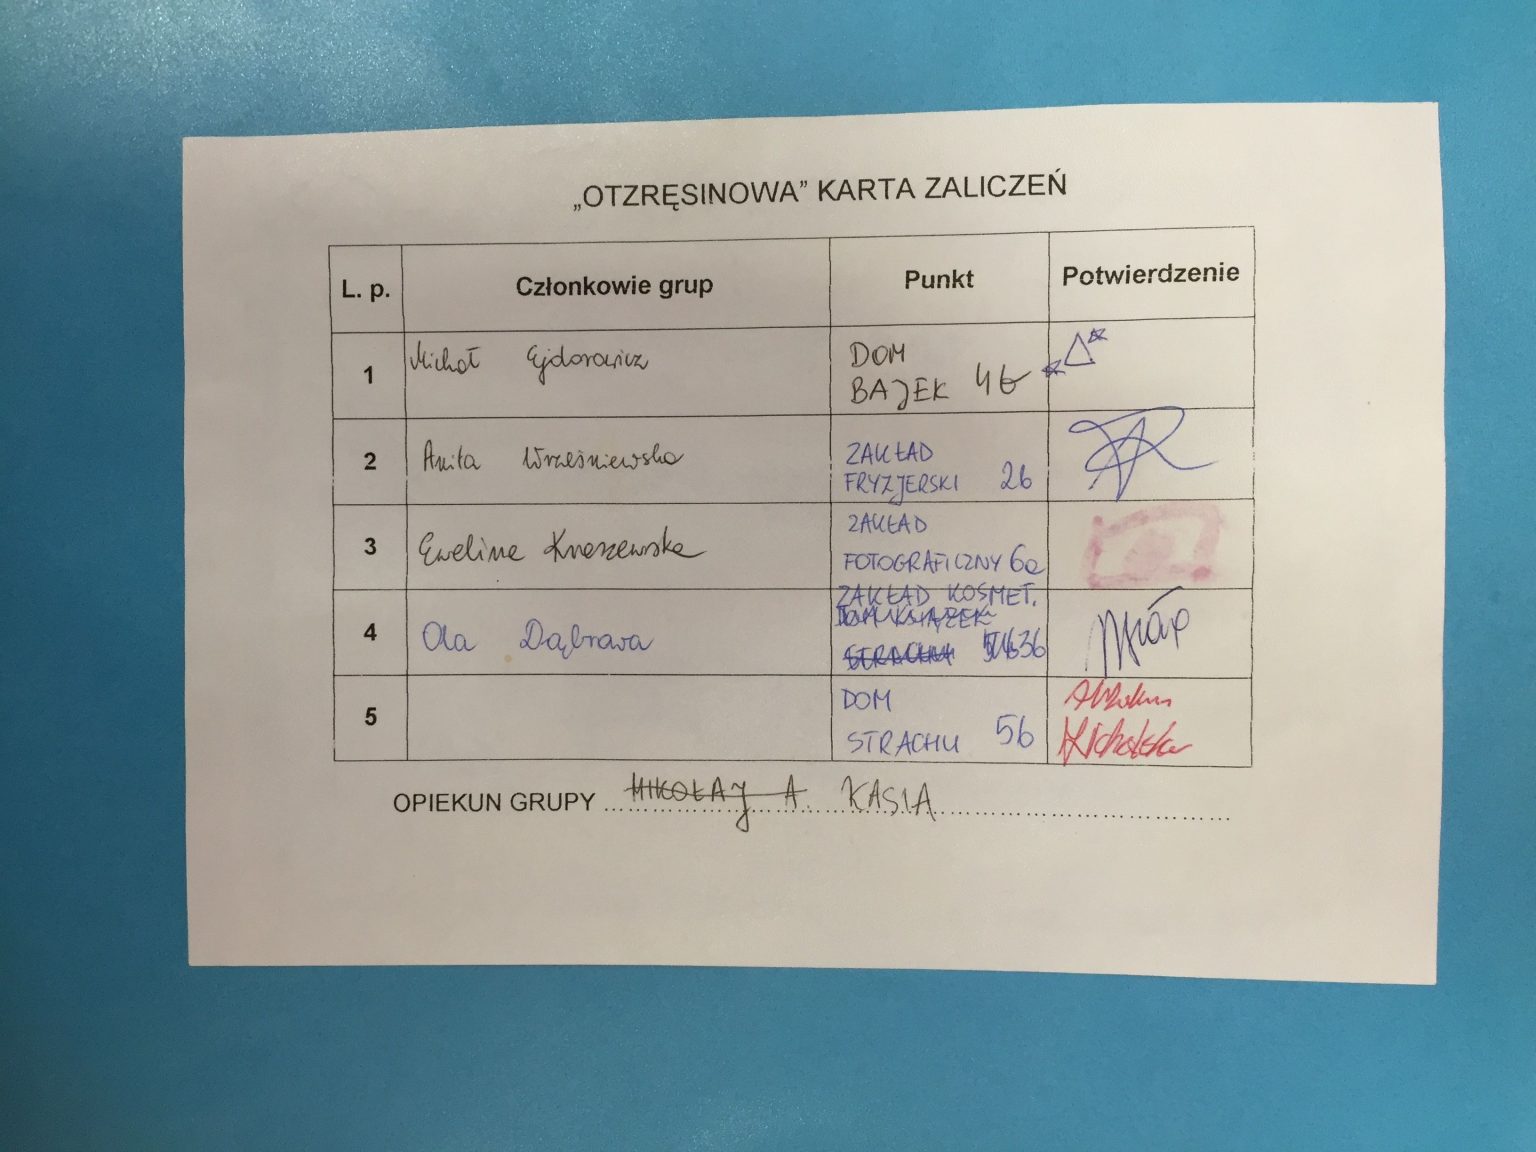 „OTZRĘSINOWA” KARTA ZALICZEŃ
L. p. Członkowie grup Punkt Potwierdzenie
1 Michał Ejdorowicz DOM
BAJEK 4b
2 Anita Wrześniewska ZAKŁAD
FRYZJERSKI 2b
3 Ewelina Kraszewska ZAKŁAD
FOTOGRAFICZNY 6a
4 Ola Dąbrowa ZAKŁAD KOSMET.
5 DOM
STRACHU 5b
OPIEKUN GRUPY MIKOŁAJ A. KASIA